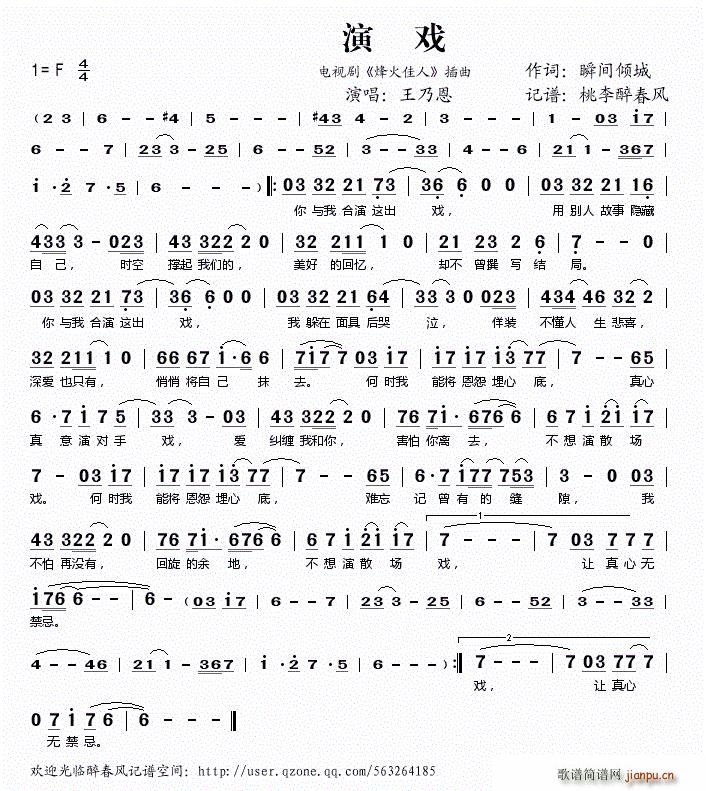 演 戏
1= F 4/4
电视剧《烽火佳人》插曲 作词：瞬间倾城
演唱：王乃恩 记谱：桃李醉春风
(2 3 | 6 - - #4 | 5 - - - | #43 4 - - | 3 - - - | 1 - 03 i7 |
6 - - 7 | 23 3 - 25 | 6 - - 52 | 3 - - 33 | 4 - - 6 | 21 1 - 367 |
i · 2 7 · 5 | 6 - - ) ‖: 03 32 21 73 | 36 6 0 0 | 03 32 21 16 |
你 与我 合演 这出 戏， 用 别人 故事 隐藏
433 3 - 023 | 43 322 2 0 | 32 211 1 0 | 21 23 2 6 | 7 - - 0 |
自 己， 时空 撑起 我们的， 美好 的回忆， 却不 曾撰 写 结 局。
03 32 21 73 | 36 6 0 0 | 03 32 21 64 | 33 3 0 023 | 434 46 32 2 |
你 与我 合演 这出 戏， 我 躲在 面具 后哭 泣， 佯装 不懂人 生 悲喜，
32 211 1 0 | 66 67 i·6 6 | 7i7 7 03 i7 | i7 i7 i3 77 | 7 - - 65 |
深爱 也只有， 悄悄 将自 己 抹 去。 何 时我 能将 恩怨 埋心 底， 真心
6 · 7 i 75 | 33 3 - 03 | 43 322 2 0 | 76 7i· 676 6 | 67 i 2i i7 |
真 意 演 对手 戏， 爱 纠缠 我和你， 害怕 你离 去， 不想 演 散 场
7 - 03 i7 | i7 i7 i3 77 | 7 - - 65 | 6·7 i77 753 | 3 - 0 03 |
戏。 何 时我 能将 恩怨 埋心 底， 难忘 记 曾 有 的 缝 隙， 我
43 322 2 0 | 76 7i· 676 6 | 67 i 2i i7 | 1 7 - - - | 7 03 77 7 |
不怕 再没有， 回旋 的余 地， 不想 演 散 场 戏， 让 真心 无
i76 6 - - | 6 - (03 i7 | 6 - - 7 | 23 3 - 25 | 6 - - 52 | 3 - - 33 |
禁忌。
4 - - 46 | 21 1 - 367 | i · 2 7 · 5 | 6 - - ) :‖ 2 7 - - - | 7 03 77 7 |
戏， 让 真心
0 7 i 76 | 6 - - - ‖
无 禁 忌。
欢迎光临醉春风记谱空间：http://user.qzone.qq.com/563264185
歌谱简谱网
jianpu.cn